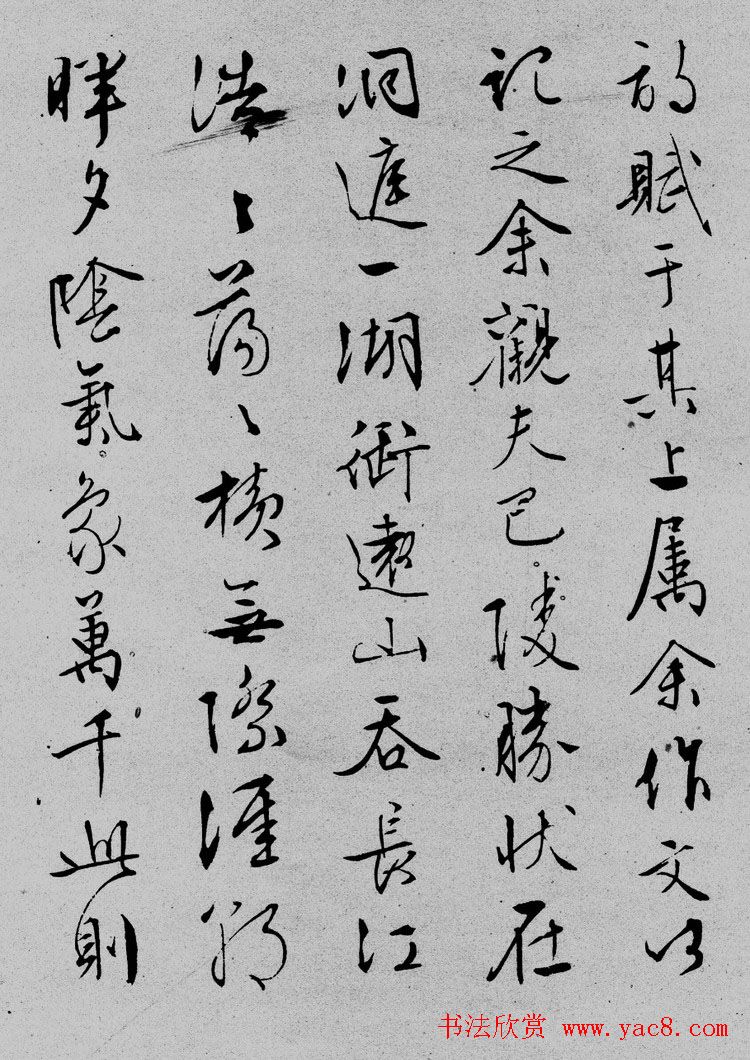 詩賦于其上属余作文以
記之余觀夫巴陵勝状在
洞庭一湖銜遠山吞長江
浩〻蕩〻横無際涯朝
暉夕陰氣象萬千此則
书法欣赏 www.yac8.com